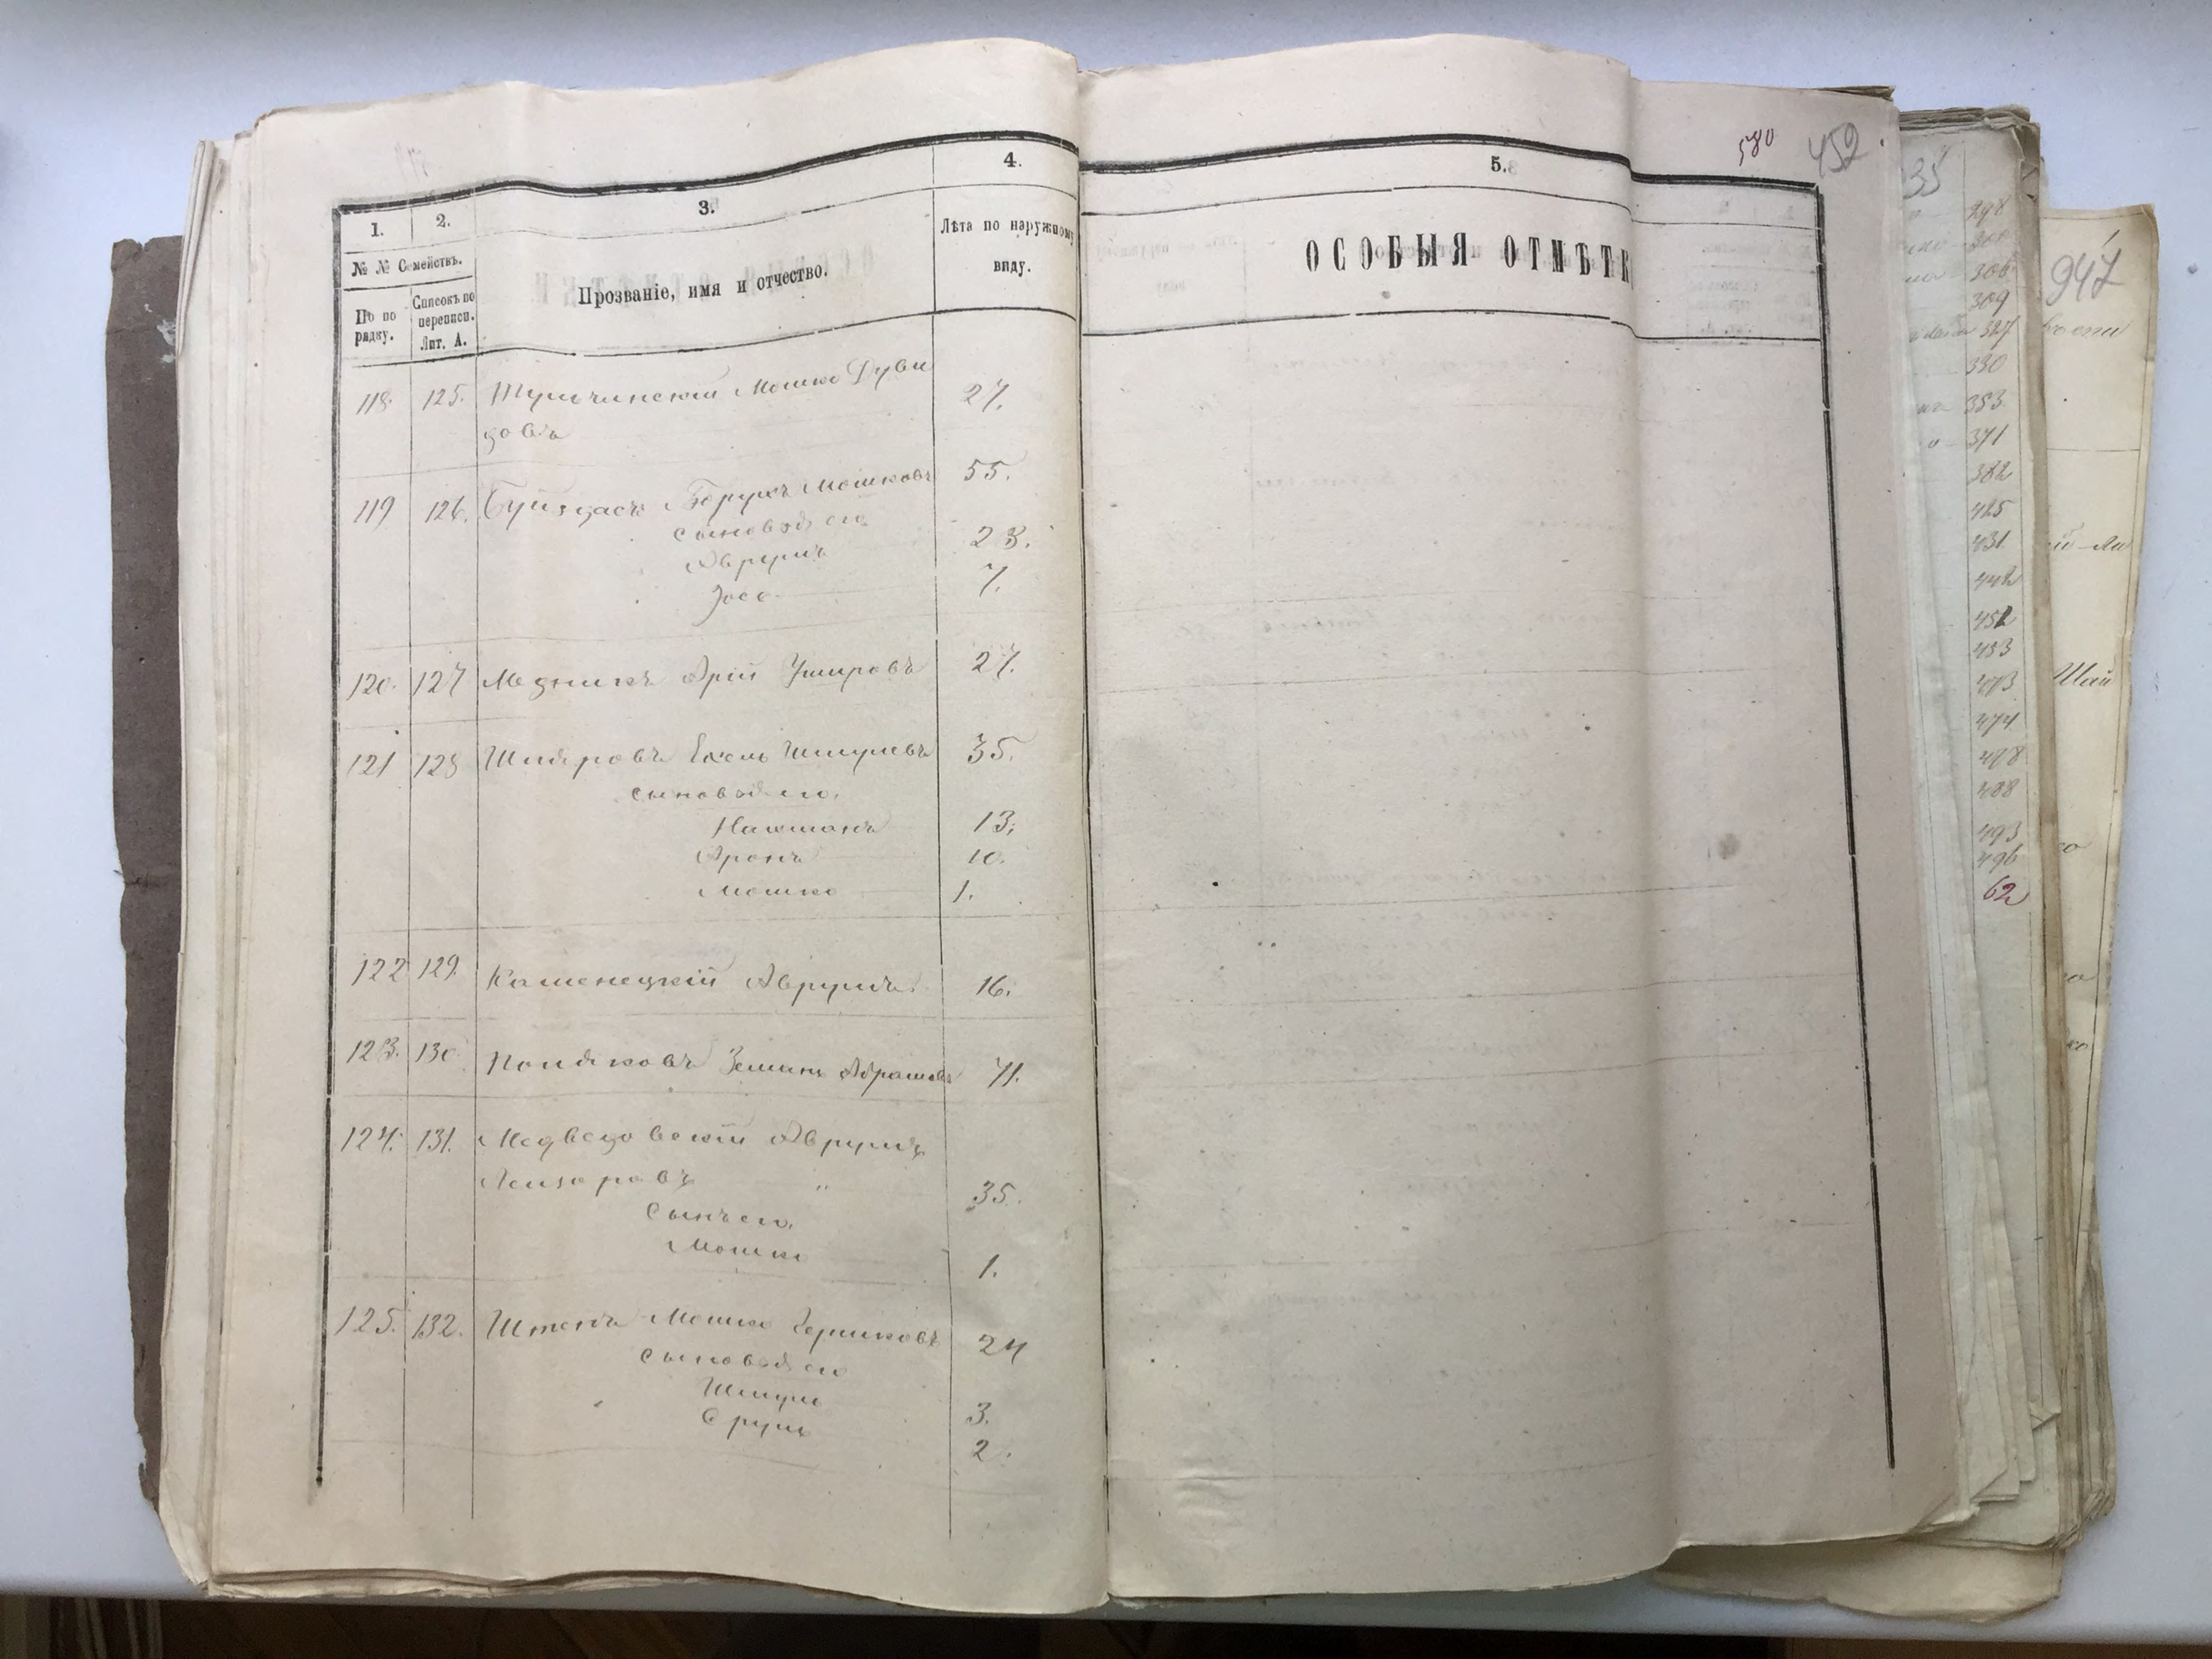 580 452.
1.
2.
3.
4.
5.
№ № Семействъ.
По по
рядку.
Списокъ по
переписи.
Лит. А.
Прозваніе, имя и отчество.
Лѣта по наружному
виду.
ОСОБЫЯ ОТМѢТК
118. 125. Мошко Дуви 27.
довъ
119 126. Борухъ Мошковъ 55.
сыновья его
Аврумъ 23.
Іосе 7.
120. 127 Медникъ Арій Умировъ 27.
121 128 Шмулевъ 35.
сыновья его,
Нахманъ 13.
Аронъ 10.
Мошко 1.
122 129. Каменецкій Аврумъ. 16.
123. 130. Поляковъ Зельманъ Абрамовъ 71.
124. 131. Медведовскій Аврумъ
Лейзоровъ " 35.
Сынъ его.
Мошко 1.
125. 132. Штенъ Мошко Гершковъ 24
сыновья его
Шмуль 3.
Сруль 2.
35
298
306
309
327
330
353.
371
382
425
431
442
452
453
473
474
478
488
493
496
62
947
Шай